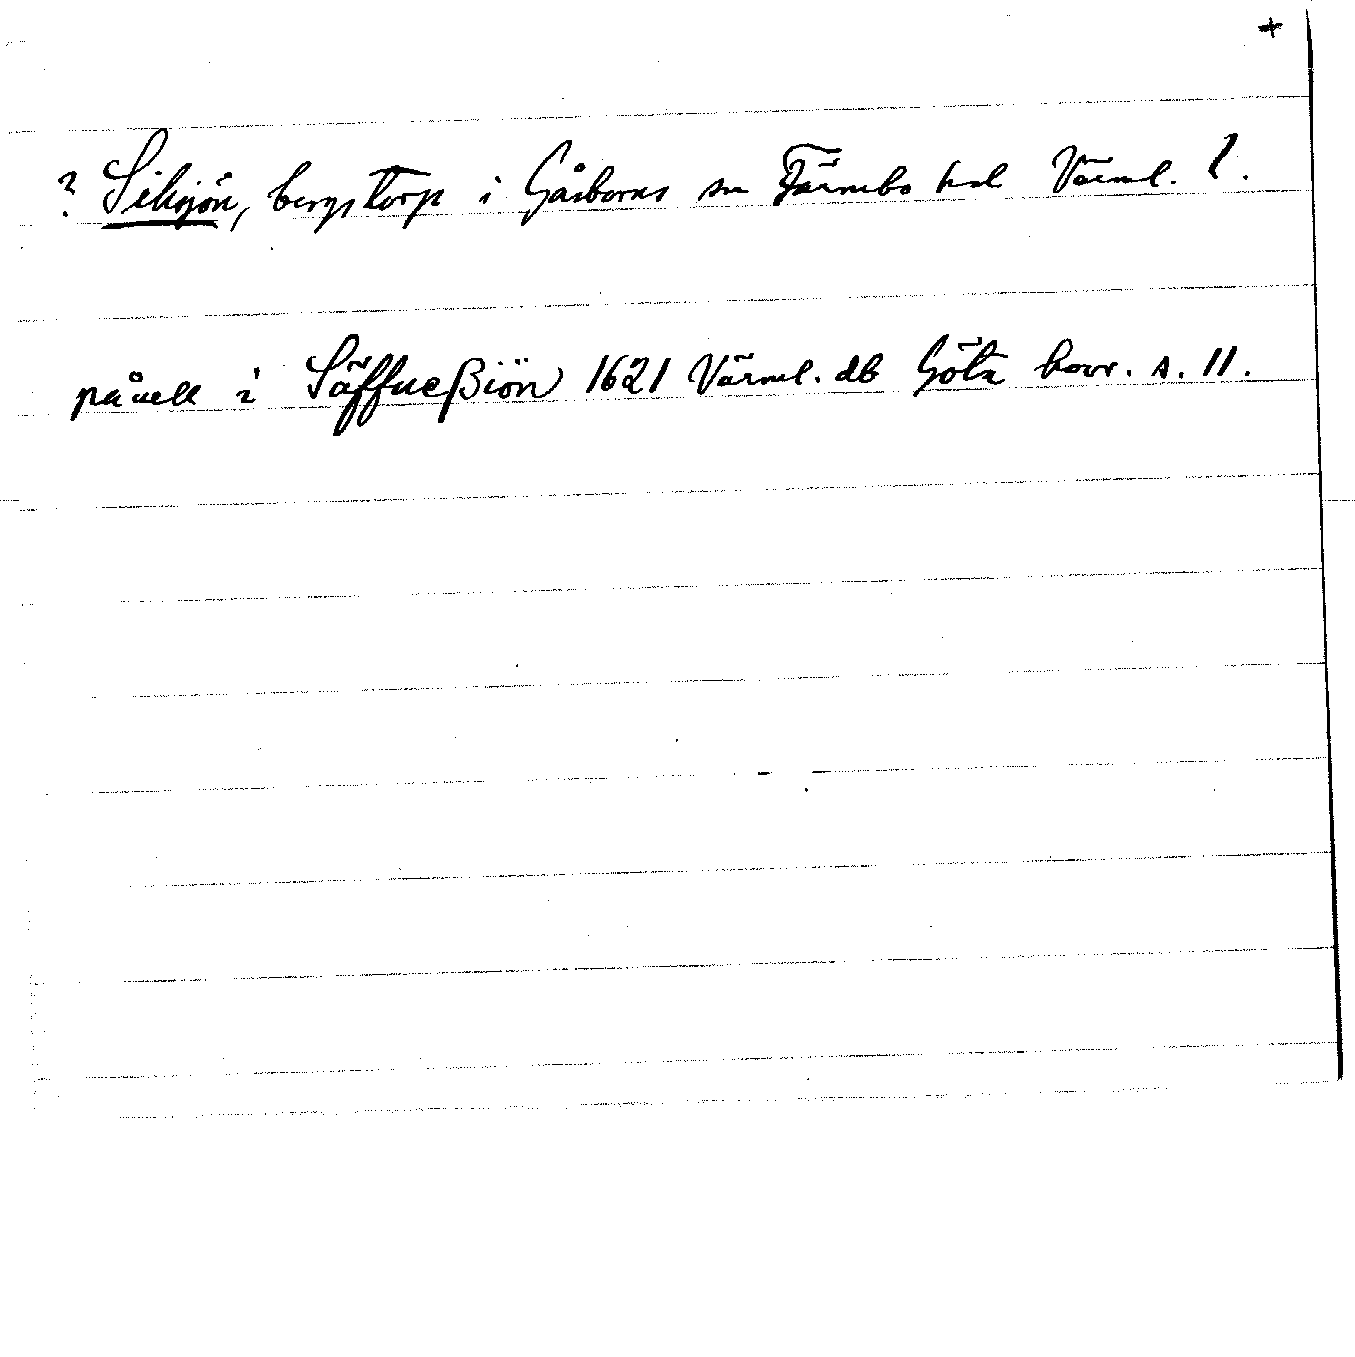 +
? Siksjön, bergstorp i Gåsborns sn Färnebo hd Värml. l.
påuell i Säffueßiön 1621 Värml. db Göta hovr. s. 11.